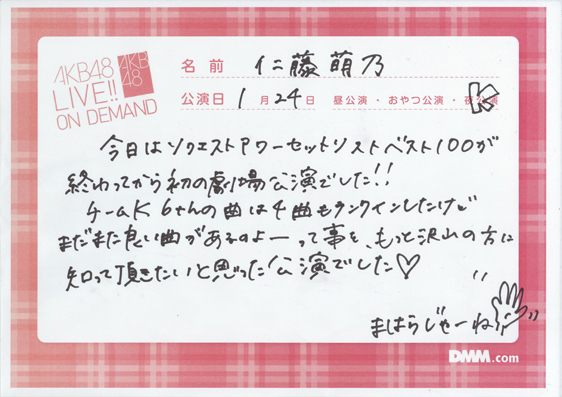 AKB48
LIVE!!
ON DEMAND
AKB
48
名前 仁藤萌乃
公演日 1月24日 昼公演・おやつ公演・夜公演
K
今日はリクエストアワーセットリストベスト100が
終わってから初の劇場公演でした!!
チームK 6thの曲は4曲もランクインしたけど
まだまだ良い曲があるのよーって事を、もっと沢山の方に
知って頂きたいと思った公演でした♡
まはらじゃーね
DMM.com